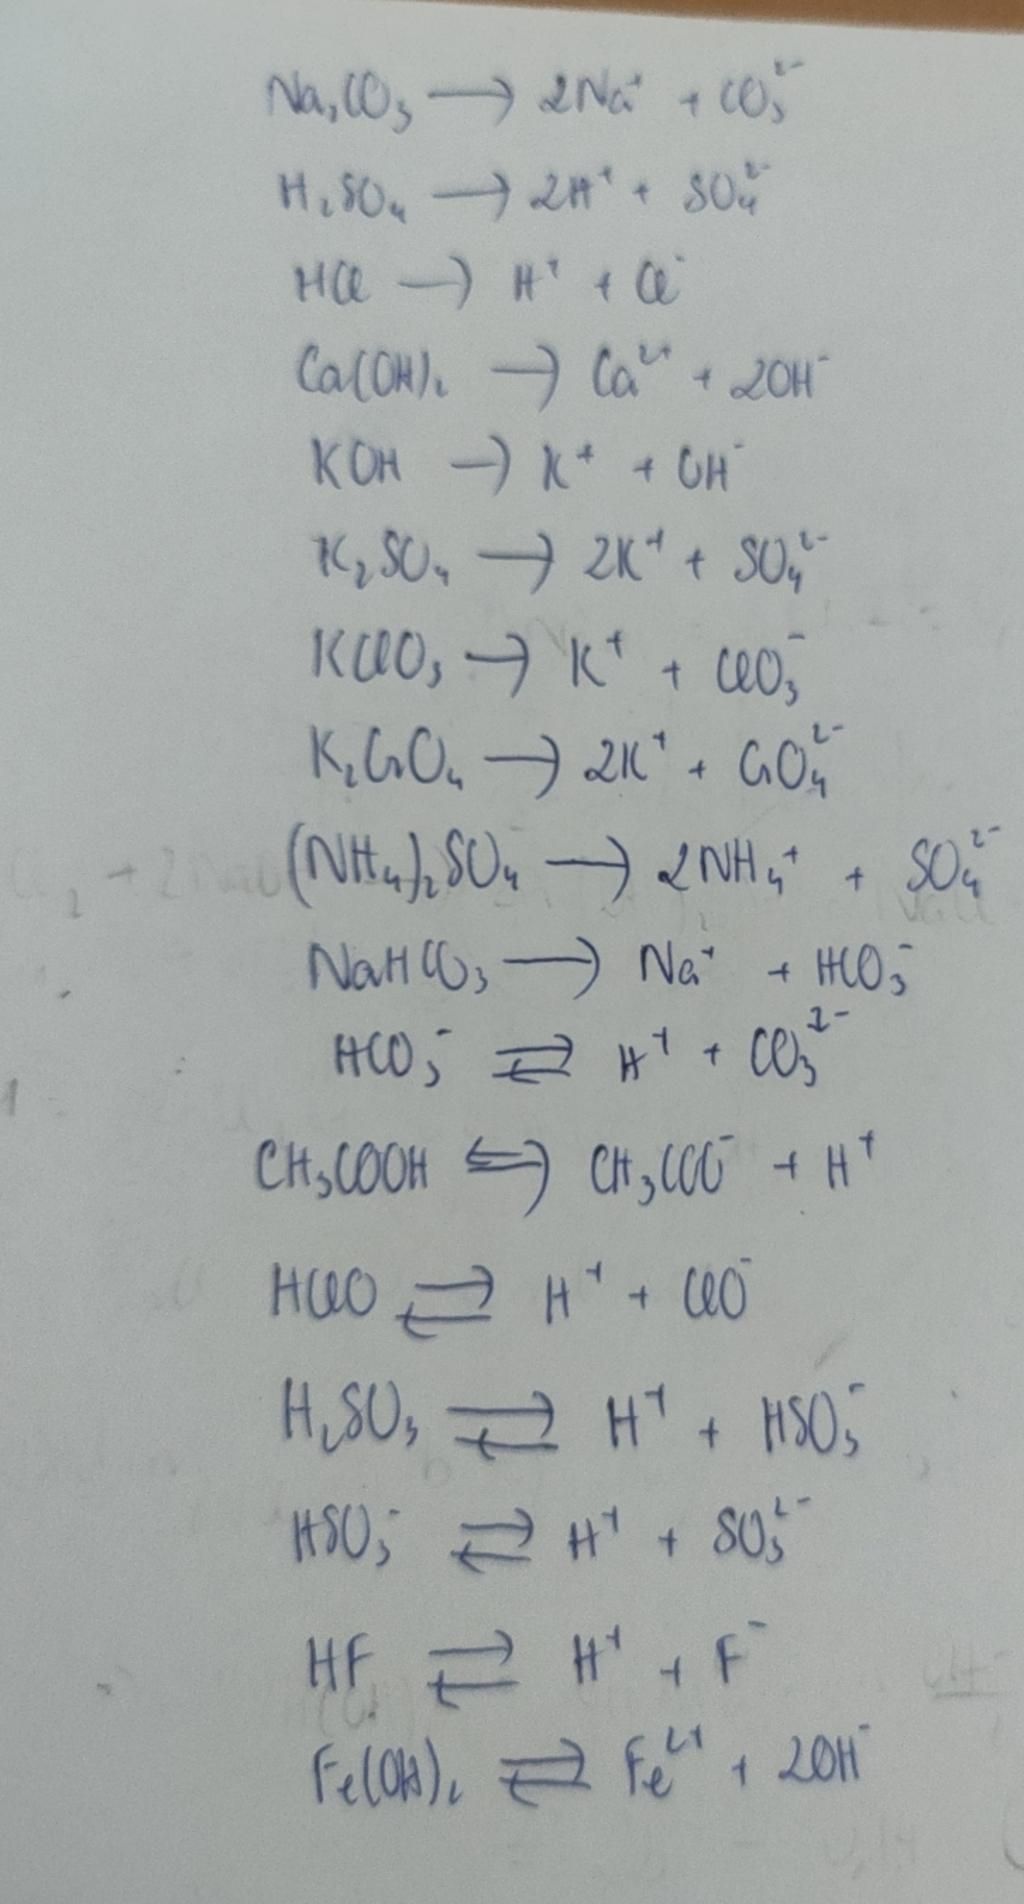 Na₂CO₃ → 2Na⁺ + CO₃²⁻
H₂SO₄ → 2H⁺ + SO₄²⁻
HCl → H⁺ + Cl⁻
Ca(OH)₂ → Ca²⁺ + 2OH⁻
KOH → K⁺ + OH⁻
K₂SO₄ → 2K⁺ + SO₄²⁻
KClO₃ → K⁺ + ClO₃⁻
K₂CrO₄ → 2K⁺ + CrO₄²⁻
(NH₄)₂SO₄ → 2NH₄⁺ + SO₄²⁻
NaHCO₃ → Na⁺ + HCO₃⁻
HCO₃⁻ ⇌ H⁺ + CO₃²⁻
CH₃COOH ⇌ CH₃COO⁻ + H⁺
HClO ⇌ H⁺ + ClO⁻
H₂SO₃ ⇌ H⁺ + HSO₃⁻
HSO₃⁻ ⇌ H⁺ + SO₃²⁻
HF ⇌ H⁺ + F⁻
Fe(OH)₂ ⇌ Fe²⁺ + 2OH⁻